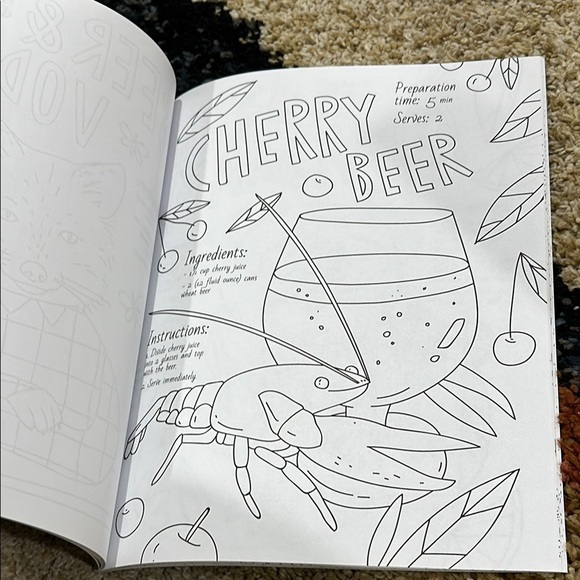 CHERRY
BEER
Preparation
time: 5 min
Serves: 2
Ingredients:
cup cherry juice
- 2 (12 fluid ounce) cans
wheat beer
Instructions:
1. Divide cherry juice
into 2 glasses and top
with the beer.
2. Serve immediately.